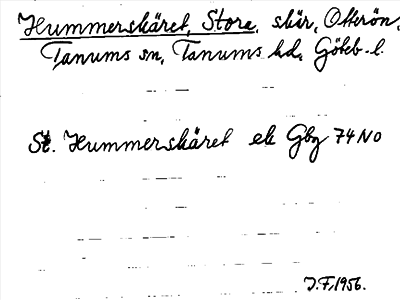 Hummerskäret, Store, skär, Otterön,
Tanums sn, Tanums hd, Göteb. l.
St. Hummerskäret ek Gbg 74 NO
J.F. 1956.